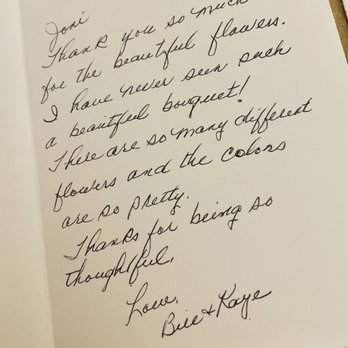 Joni
Thank you so much
for the beautiful flowers.
I have never seen such
a beautiful bouquet!
There are so many different
flowers and the colors
are so pretty.
Thanks for being so
thoughtful.
Love,
Bill & Kaye